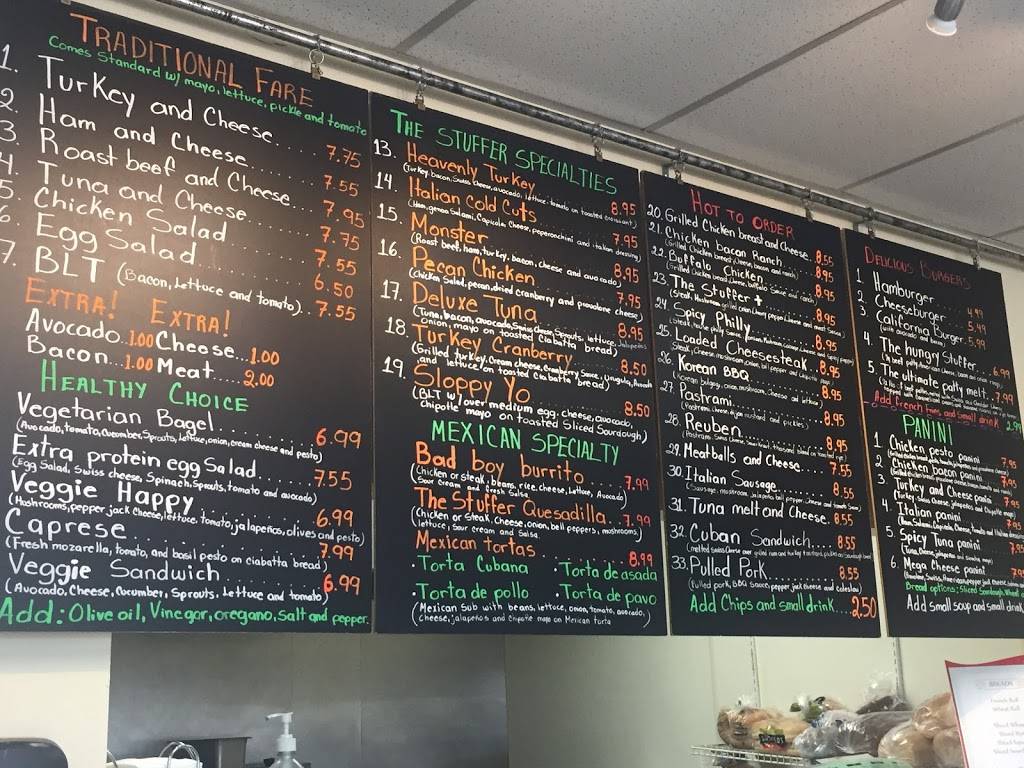 TRADITIONAL FARE
Comes Standard w/ mayo, lettuce, pickle and tomato
1. Turkey and Cheese.... 7.75
2. Ham and Cheese.... 7.55
3. Roast beef and Cheese... 7.95
4. Tuna and Cheese.... 7.75
5. Chicken Salad 7.55
6 Egg Salad 6.50
7. BLT (Bacon, Lettuce and tomato).. 7.55
EXTRA! EXTRA!
Avocado..1.00 Cheese...1.00
Bacon....1.00 Meat.... 2.00
HEALTHY CHOICE
Vegetarian Bagel 6.99
(Avocado, tomato, Cucumber, Sprouts, lettuce, onion, cream cheese and pesto)
Extra protein egg Salad 7.55
(Egg Salad, Swiss cheese, Spinach, Sprouts, tomato and avocado)
Veggie Happy 6.99
(Mushrooms, pepper jack Cheese, lettuce, tomato, jalapeños, olives and pesto)
Caprese 7.99
(Fresh mozarella, tomato, and basil pesto on ciabatta bread)
Veggie Sandwich 6.99
(Avocado, Cheese, Cucumber, Sprouts, Lettuce and tomato)
Add: Olive oil, Vinegar, oregano, Salt and pepper.
THE STUFFER SPECIALTIES
13. Heavenly Turkey 8.95
(Turkey, bacon, Swiss cheese, avocado, lettuce, tomato on toasted croissant)
14. Italian cold Cuts 7.95
(Ham, genoa Salami, Capicola, Cheese, peperonchini and italian dressing)
15. Monster 8.95
(Roast beef, ham, turkey, bacon, cheese and avocado)
16. Pecan Chicken 7.95
(Chicken Salad, pecan, dried cranberry and provolone cheese)
17. Deluxe Tuna 8.95
(Tuna, bacon, avocado, Swiss cheese, Sprouts, lettuce, Jalapeños
Onion, mayo on toasted ciabatta bread)
18. Turkey Cranberry 8.50
(Grilled turkey, Cream cheese, Cranberry Sauce, Avocado
and lettuce on toasted ciabatta bread)
19. Sloppy Yo 8.50
(BLT w/over medium egg, cheese, avocado,
Chipotle mayo on toasted Sliced Sourdough)
MEXICAN SPECIALTY
Bad boy burrito 7.99
(Chicken or steak, beans, rice, cheese, Lettuce, Avocado
Sour cream and fresh Salsa)
The Stuffer Quesadilla.. 7.99
(Chicken or Steak, Cheese, onion, bell peppers, mushrooms,
lettuce, Sour cream and Salsa.
Mexican tortas 8.99
• Torta Cubana • Torta de asada
• Torta de pollo • Torta de pavo
(Mexican Sub with beans, lettuce, onion, tomato, avocado,
cheese, jalapeños and Chipotle mayo on Mexican torta
HOT TO ORDER
20. Grilled Chicken breast and Cheese.. 8.55
21. Chicken bacon Ranch 8.95
(Grilled Chicken breast, Cheese, bacon and ranch)
22. Buffalo Chicken 8.95
23. The Stuffer + 8.95
24. Spicy Philly 8.95
25. Loaded Cheesesteak.. 8.95
26. Korean BBQ 8.95
27. Pastrami 8.95
(Pastrami, Cheese, dijon mustard and pickles)
28. Reuben 8.95
29. Meatballs and Cheese.. 7.55
30. Italian Sausage 8.55
31. Tuna melt and Cheese. 8.55
32. Cuban Sandwich.... 8.55
33. Pulled Pork 8.55
(Pulled pork, BBQ Sauce, pepper jack cheese and coleslaw)
Add Chips and small drink.... 2.50
DELICIOUS BURGERS
1. Hamburger 4.99
2. Cheeseburger 5.49
3. California Burger 5.99
(with avocado and bacon)
4. The hungry Stuffer.. 6.99
5. The ultimate patty melt. 7.99
Add french fries and small drink 2.99
PANINI
1. Chicken pesto panini 7.95
2. Chicken bacon panini 7.95
3. Turkey and Cheese panini 7.95
4. Italian panini 7.95
5. Spicy Tuna panini 7.95
6. Mega Cheese panini 7.95
Bread options: Sliced Sourdough, Wheat
Add small soup and small drink
BREADS
French Roll
Wheat Roll